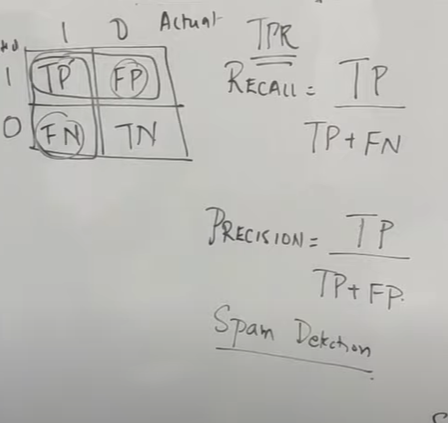 1 0 Actual
1 TP FP
0 FN TN
TPR
RECALL = TP
TP + FN
PRECISION = TP
TP + FP.
Spam Detection